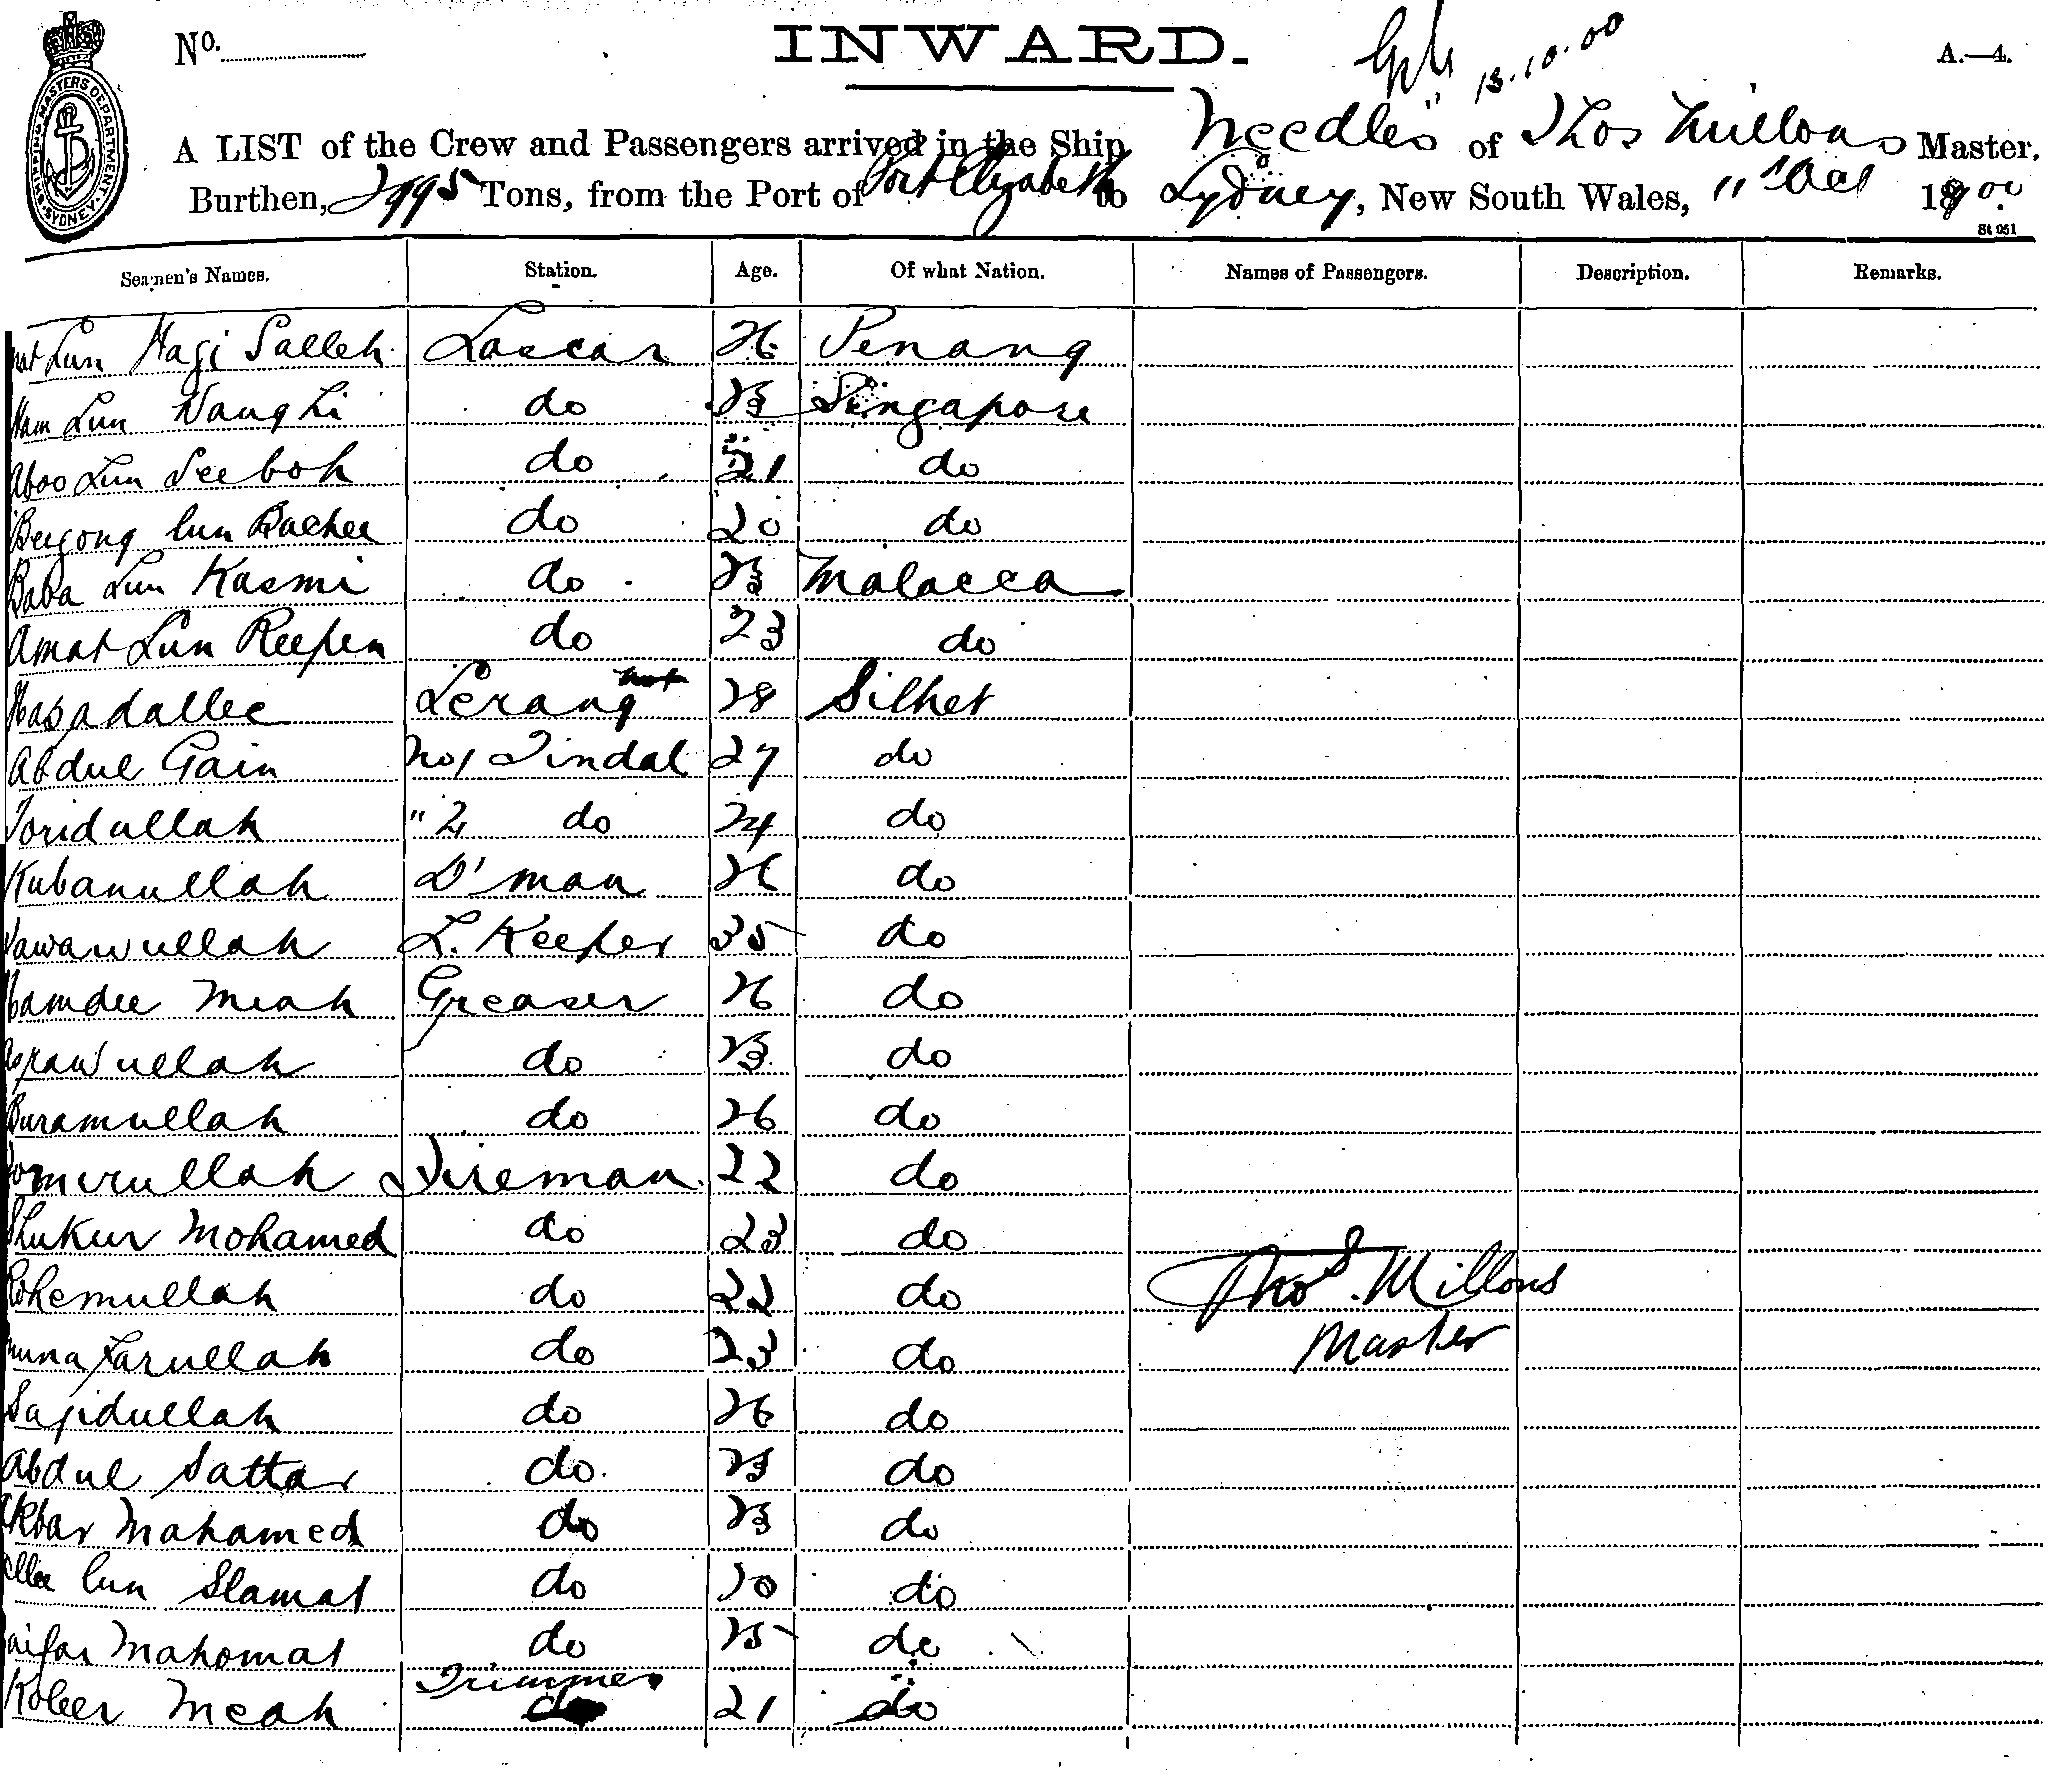 No.
INWARD.
13.10.00
A.—4.
SHIPPING MASTERS DEPARTMENT
SYDNEY
A LIST of the Crew and Passengers arrived in the Ship "Needles" of Thos Millons Master.
Burthen, 2995 Tons, from the Port of Port Elizabeth to Sydney, New South Wales, 11th Oct 1900.
St 951
Seamen's Names. Station. Age. Of what Nation. Names of Passengers. Description. Remarks.
Lun Hagi Salleh Lascar 26 Penang
Lun Wangki do 23 Singapore
Aboo Lun Seeboh do 21 do
Beyong bun Bachee do 20 do
Baba Lun Kasmi do 23 Malacca
Amat Lun Reepen do 23 do
Hasadallee Serang 28 Silhet
Abdul Gain No 1 Tindal 27 do
Toridullah " 2 do 24 do
Kubanullah D'man 26 do
Jawawullah L. Keeper 35 do
Hamdee Meah Greaser 26 do
do 23 do
Buramullah do 26 do
Fireman 22 do
Shukur Mohamed do 23 do
Rohemullah do 22 do
Thos. Millons
do 23 do
Master
Sajidullah do 26 do
Abdul Sattar do 23 do
Akbar Mahamed do 23 do
bun Slamat do 20 do
Mahomat do 25 do
Kober Meah Trimmer 21 do